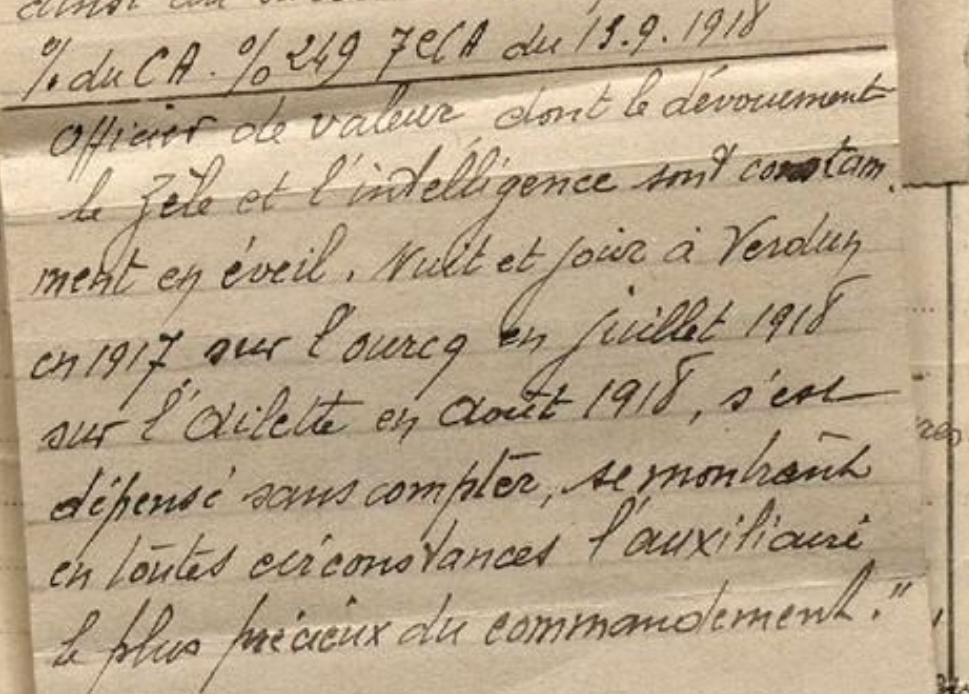 ainsi
% du CA. % 249 7e CA du 13.9.1918
Officier de valeur dont le dévouement
le zèle et l'intelligence sont constam
ment en éveil. Nuit et jour à Verdun
en 1917 sur l'ourcq en juillet 1918
sur l'ailette en août 1918, s'est
dépensé sans compter, se montrant
en toutes circonstances l'auxiliaire
le plus précieux du commandement."
res